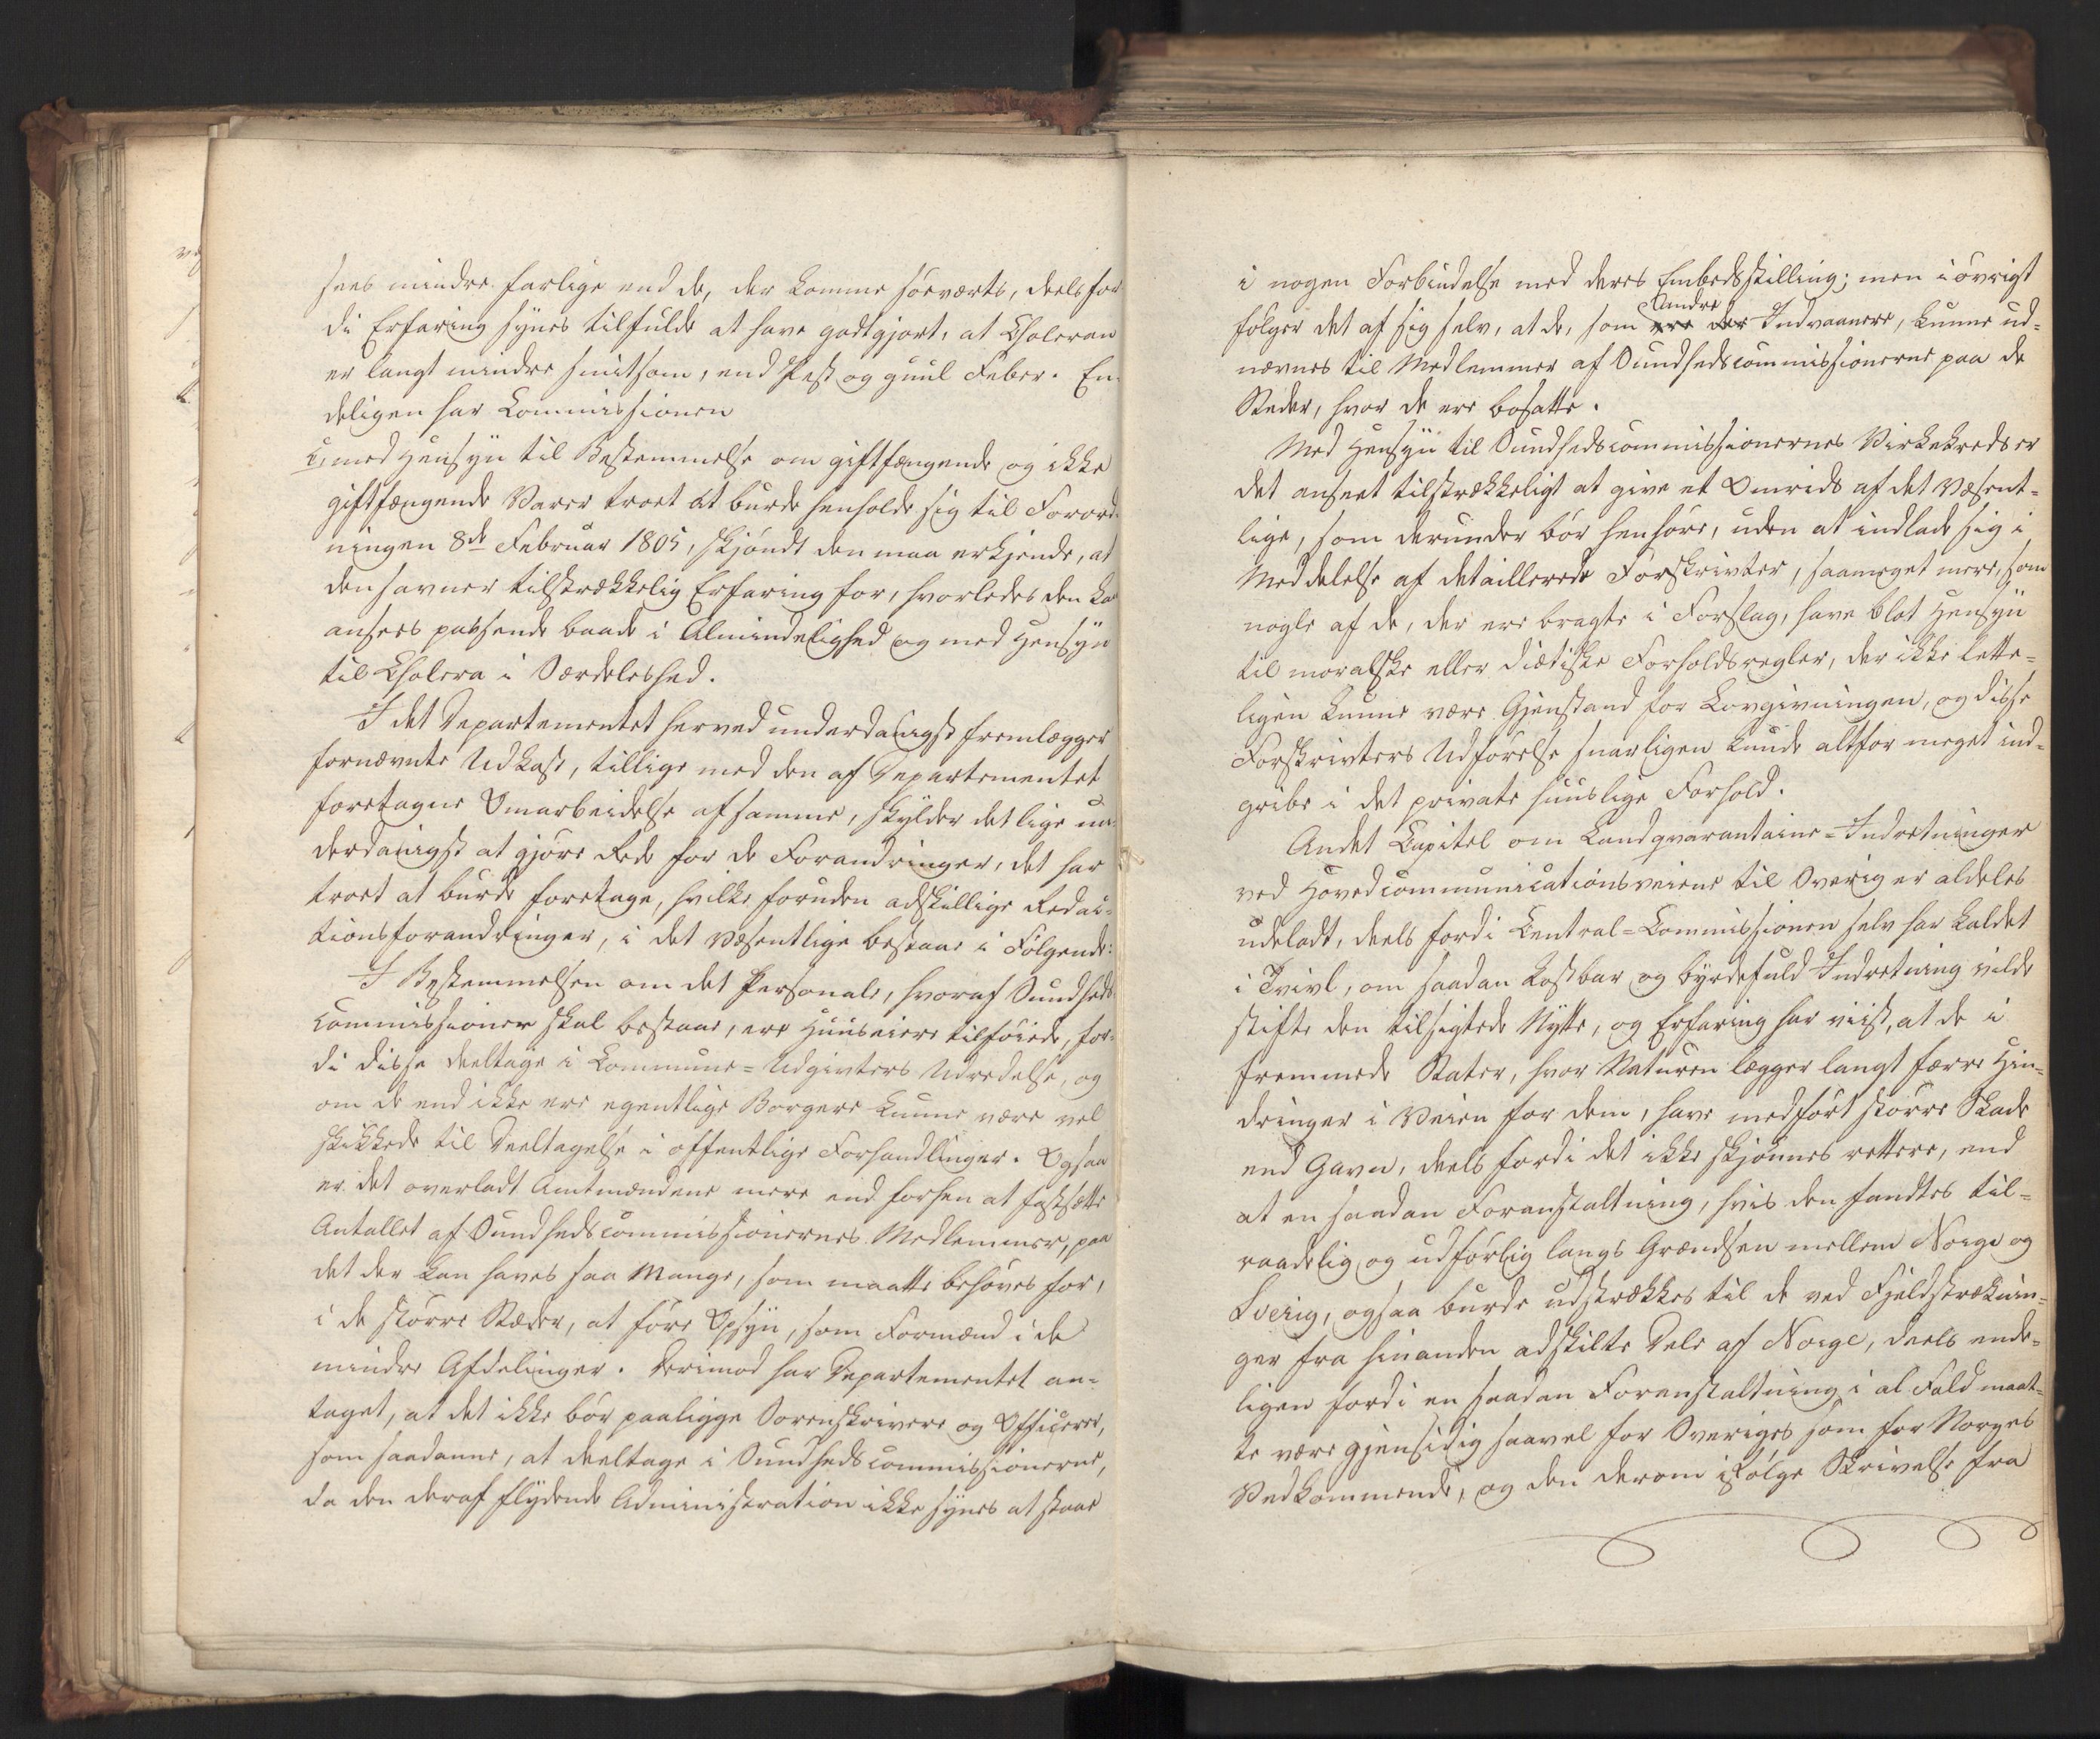 sees mindre farlige end de, der komme söeværts, deels for
di Erfaring synes tilfulde at have godtgjort, at Choleraen
er langt mindre smitsom, end Pest og guul Feber. En-
deligen har Commissionen
c, med Hensyn til Bestemmelse om giftfængende og ikke
giftfængende Varer troet at burde henholde sig til Forord-
ningen 8de Februar 1805, skjöndt den maa erkjende, at
den savner tilstrækkelig Erfaring for, hvorledes den kan
ansees passende baade i Almindelighed og med Hensyn
til Cholera i Særdeleshed.
I det Departementet herved underdanigst fremlægger
fornævnte Udkast, tillige med den af Departementet
foretagne Omarbeidelse af samme, skylder det lige un-
derdanigst at gjöre Rede for de Forandringer, det har
troet at burde foretage, hvilke foruden adskillige Redac-
tionsforandringer, i det væsentlige bestaae i Fölgende:
I Bestemmelsen om det Personale, hvoraf Sundheds
Commissioner skal bestaae, ere Huuseiere tilföiede, for-
di disse deeltage i Commune-Udgivters Udredelse, og
om de end ikke ere egentlige Borgere kunne være vel
skikkede til Deeltagelse i offentlige Forhandlinger. Ogsaa
er det overladt Amtmændene mere end forhen at fastsætte
Antallet af Sundhedscommissionernes Medlemmer, paa
det der kan haves saa Mange, som maatte behöves for,
i de större Stæder, at före Opsyn, som Formænd i de
mindre Afdelinger. Derimod har Departementet an-
taget, at det ikke bör paaligge Sorenskrivere og Officerer,
som saadanne, at deeltage i Sundhedscommissionerne,
da den deraf flydende Administration ikke synes at staae
i nogen Forbindelse med deres Embedsstilling; men iövrigt
fölger det af sig selv, at de, som andre ere der Indvaanere, kunne ud-
nævnes til Medlemmer af Sundhedscommissionerne paa de
Steder, hvor de ere bosatte.
Med Hensyn til Sundhedscommissionernes Virkekreds er
det anseet tilstrækkeligt at give et Omrids af det Væsent-
lige, som derunder bör henhöre, uden at indlade sig i
Meddelelse af detaillerede Forskrivter, saameget mere, som
nogle af de, der ere bragte i Forslag, have blot Hensyn
til moralske eller diætiske Forholdsregler, der ikke lette-
ligen kunne være Gjenstand for Lovgivningen, og disse
Forskrivters Udförelse snarligen kunde altfor meget ind-
gribe i det private huuslige Forhold.
Andet Capitel om Landqvarantaine-Indretninger
ved Hovedcommunicationsveiene til Sverig er aldeles
udeladt, deels fordi Central-Commissionen selv har kaldet
i Tvivl, om saadan kostbar og byrdefuld Indretning vilde
stifte den tilsigtede Nytte, og Erfaring har viist, at de i
fremmede Stater, hvor Naturen lægger langt færre Hin-
dringer i Veien for dem, have medfört större Skade
end Gavn, deels fordi det ikke skjönnes rettere, end
at en saadan Foranstaltning, hvis den fandtes til-
raadelig og udförlig langs Grændsen mellem Norge og
Sverig, ogsaa burde udstrækkes til de ved Fjeldstræknin-
ger fra hinanden adskilte Dele af Norge, deels ende-
ligen fordi en saadan Foranstaltning i al Fald maat-
te være gjensidig saavel for Sveriges som for Norges
Vedkommende, og den derom ifölge Skrivelse fra